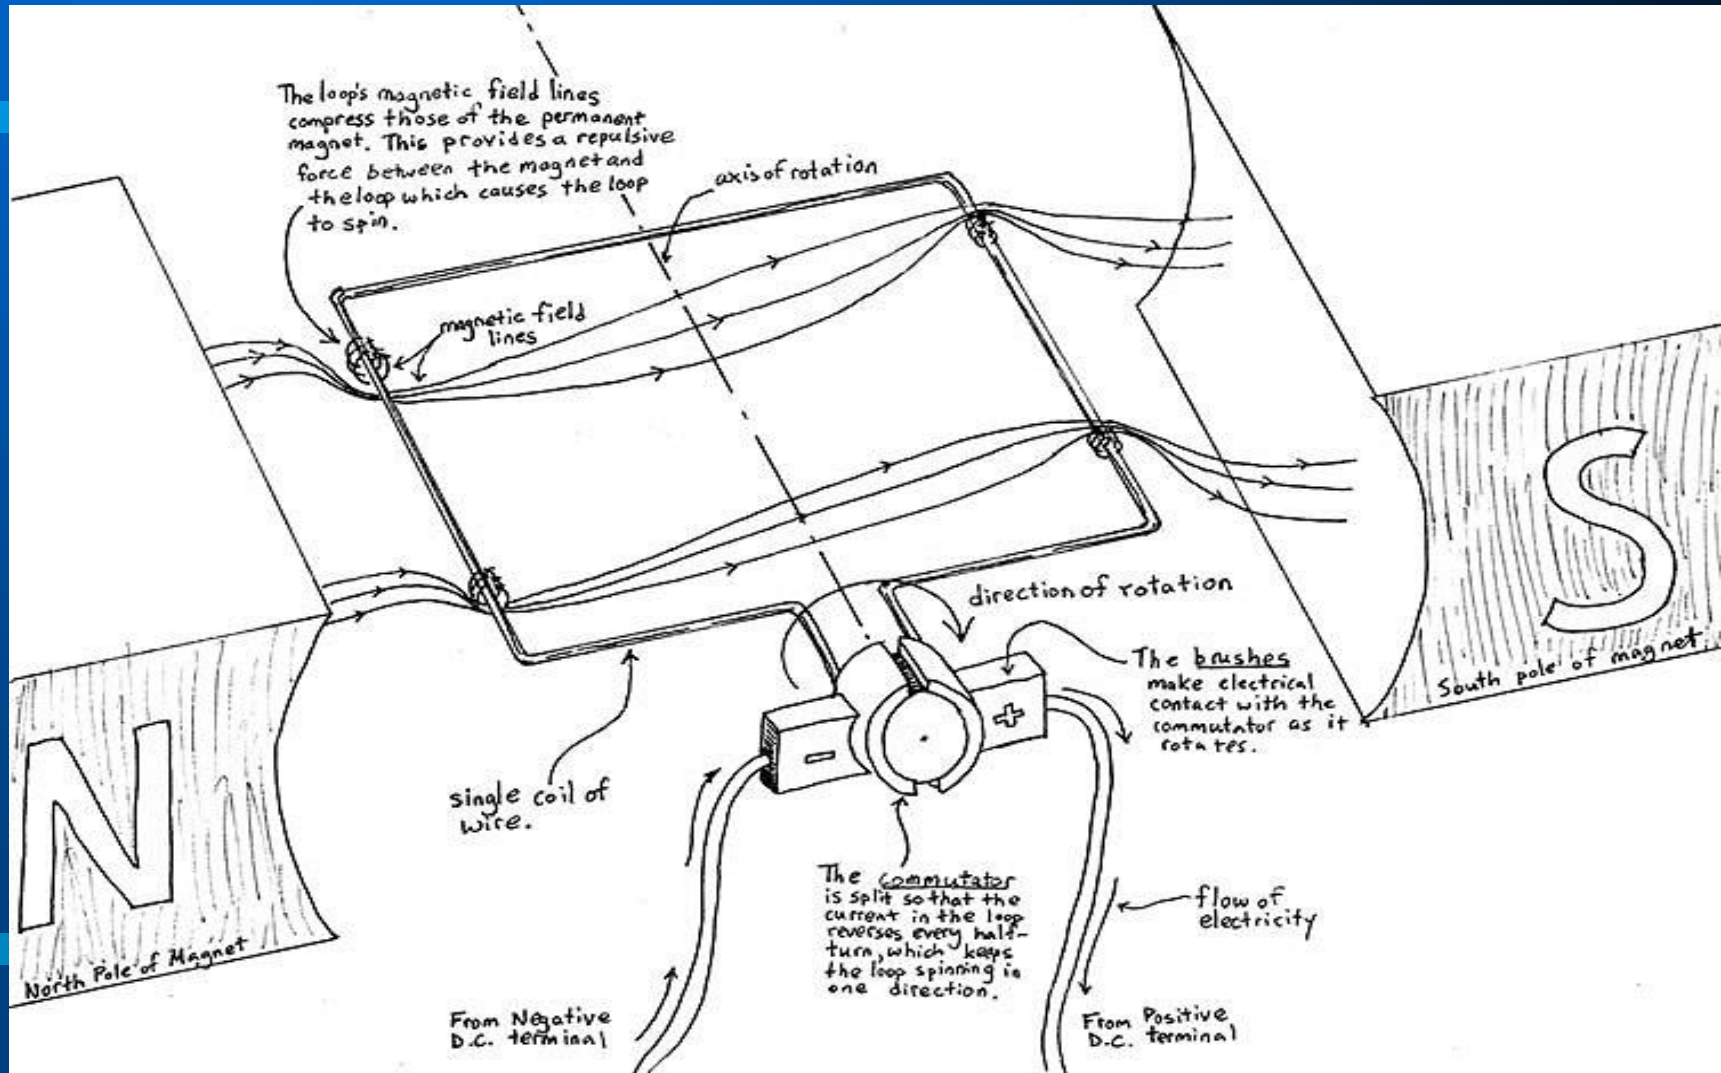 The loop's magnetic field lines
compress those of the permanent
magnet. This provides a repulsive
force between the magnet and
the loop which causes the loop
to spin.
axis of rotation
magnetic field
lines
direction of rotation
The brushes
make electrical
contact with the
commutator as it
rotates.
S
South pole of magnet.
N
North Pole of Magnet
single coil of
wire.
-
+
The commutator
is split so that the
current in the loop
reverses every half-
turn, which keeps
the loop spinning in
one direction.
flow of
electricity
From Negative
D.C. terminal
From Positive
D.C. terminal